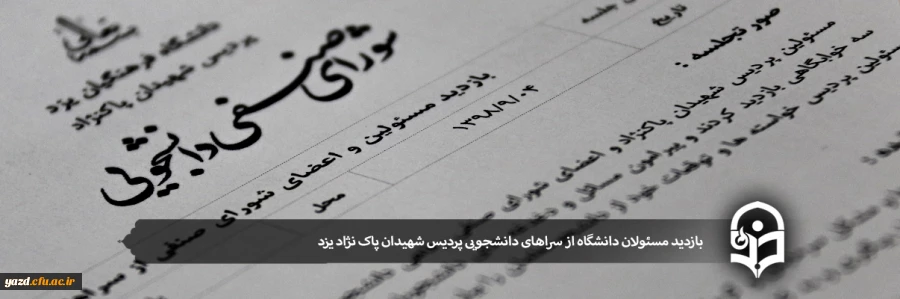 بسمه تعالی
دانشگاه فرهنگیان یزد
پردیس شهیدان پاکنژاد
شورای صنفی دانشجویی
جلسه
تاریخ
۱۳۹۸/۹/۰۴
بازدید مسئولین و اعضای شورای صنفی از سراهای
محل
صورتجلسه :
مسئولین پردیس شهیدان پاکنژاد و اعضای شورای صنفی
سه خوابگاهی بازدید کردند و پیرامون مسائل و
مسئولین پردیس خواسته ها و توقعات خود از
بازدید مسئولان دانشگاه از سراهای دانشجویی پردیس شهیدان پاک نژاد یزد
yazd.cfu.ac.ir